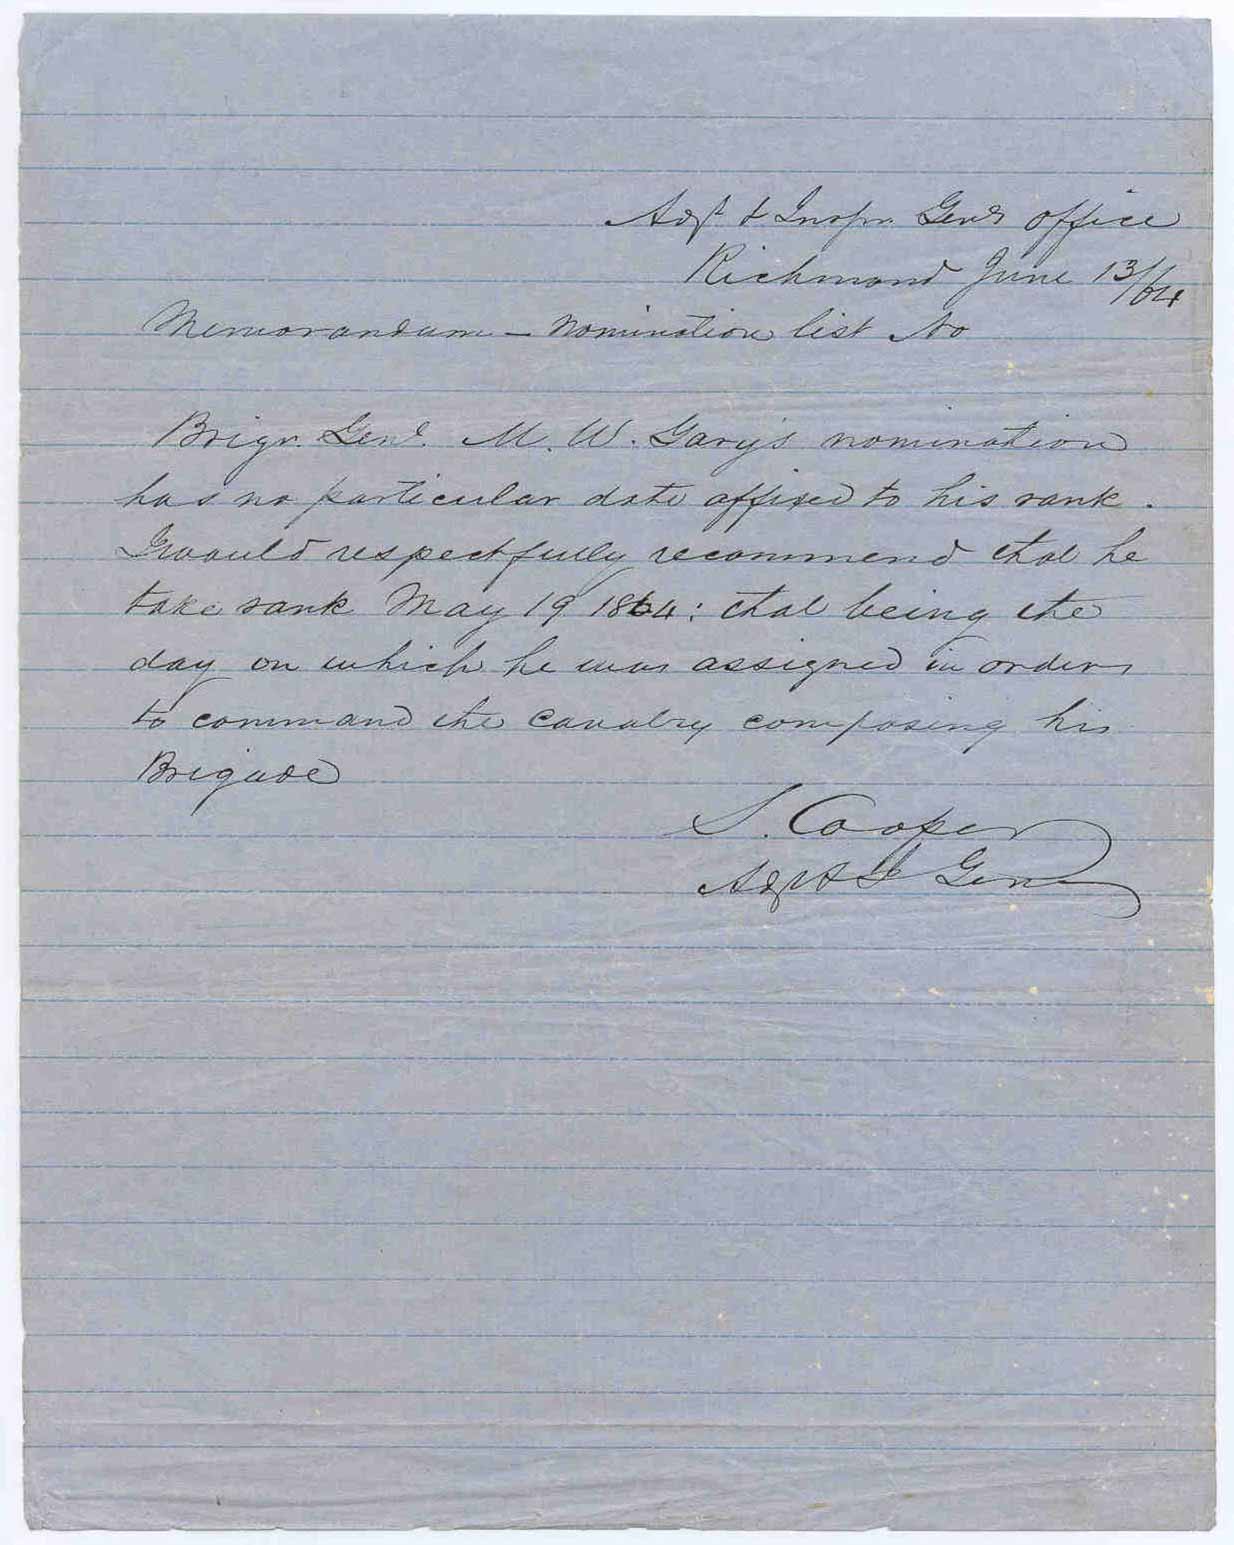 Adjt & Inspr. Genls office
Richmond June 13/64
Memorandum – Nomination list No
Brigr. Genl. M. W. Gary's nomination
has no particular date affixed to his rank.
I would respectfully recommend that he
take rank May 19 1864: that being the
day on which he was assigned in orders
to command the Cavalry composing his
Brigade
S. Cooper
Adjt & I Genl